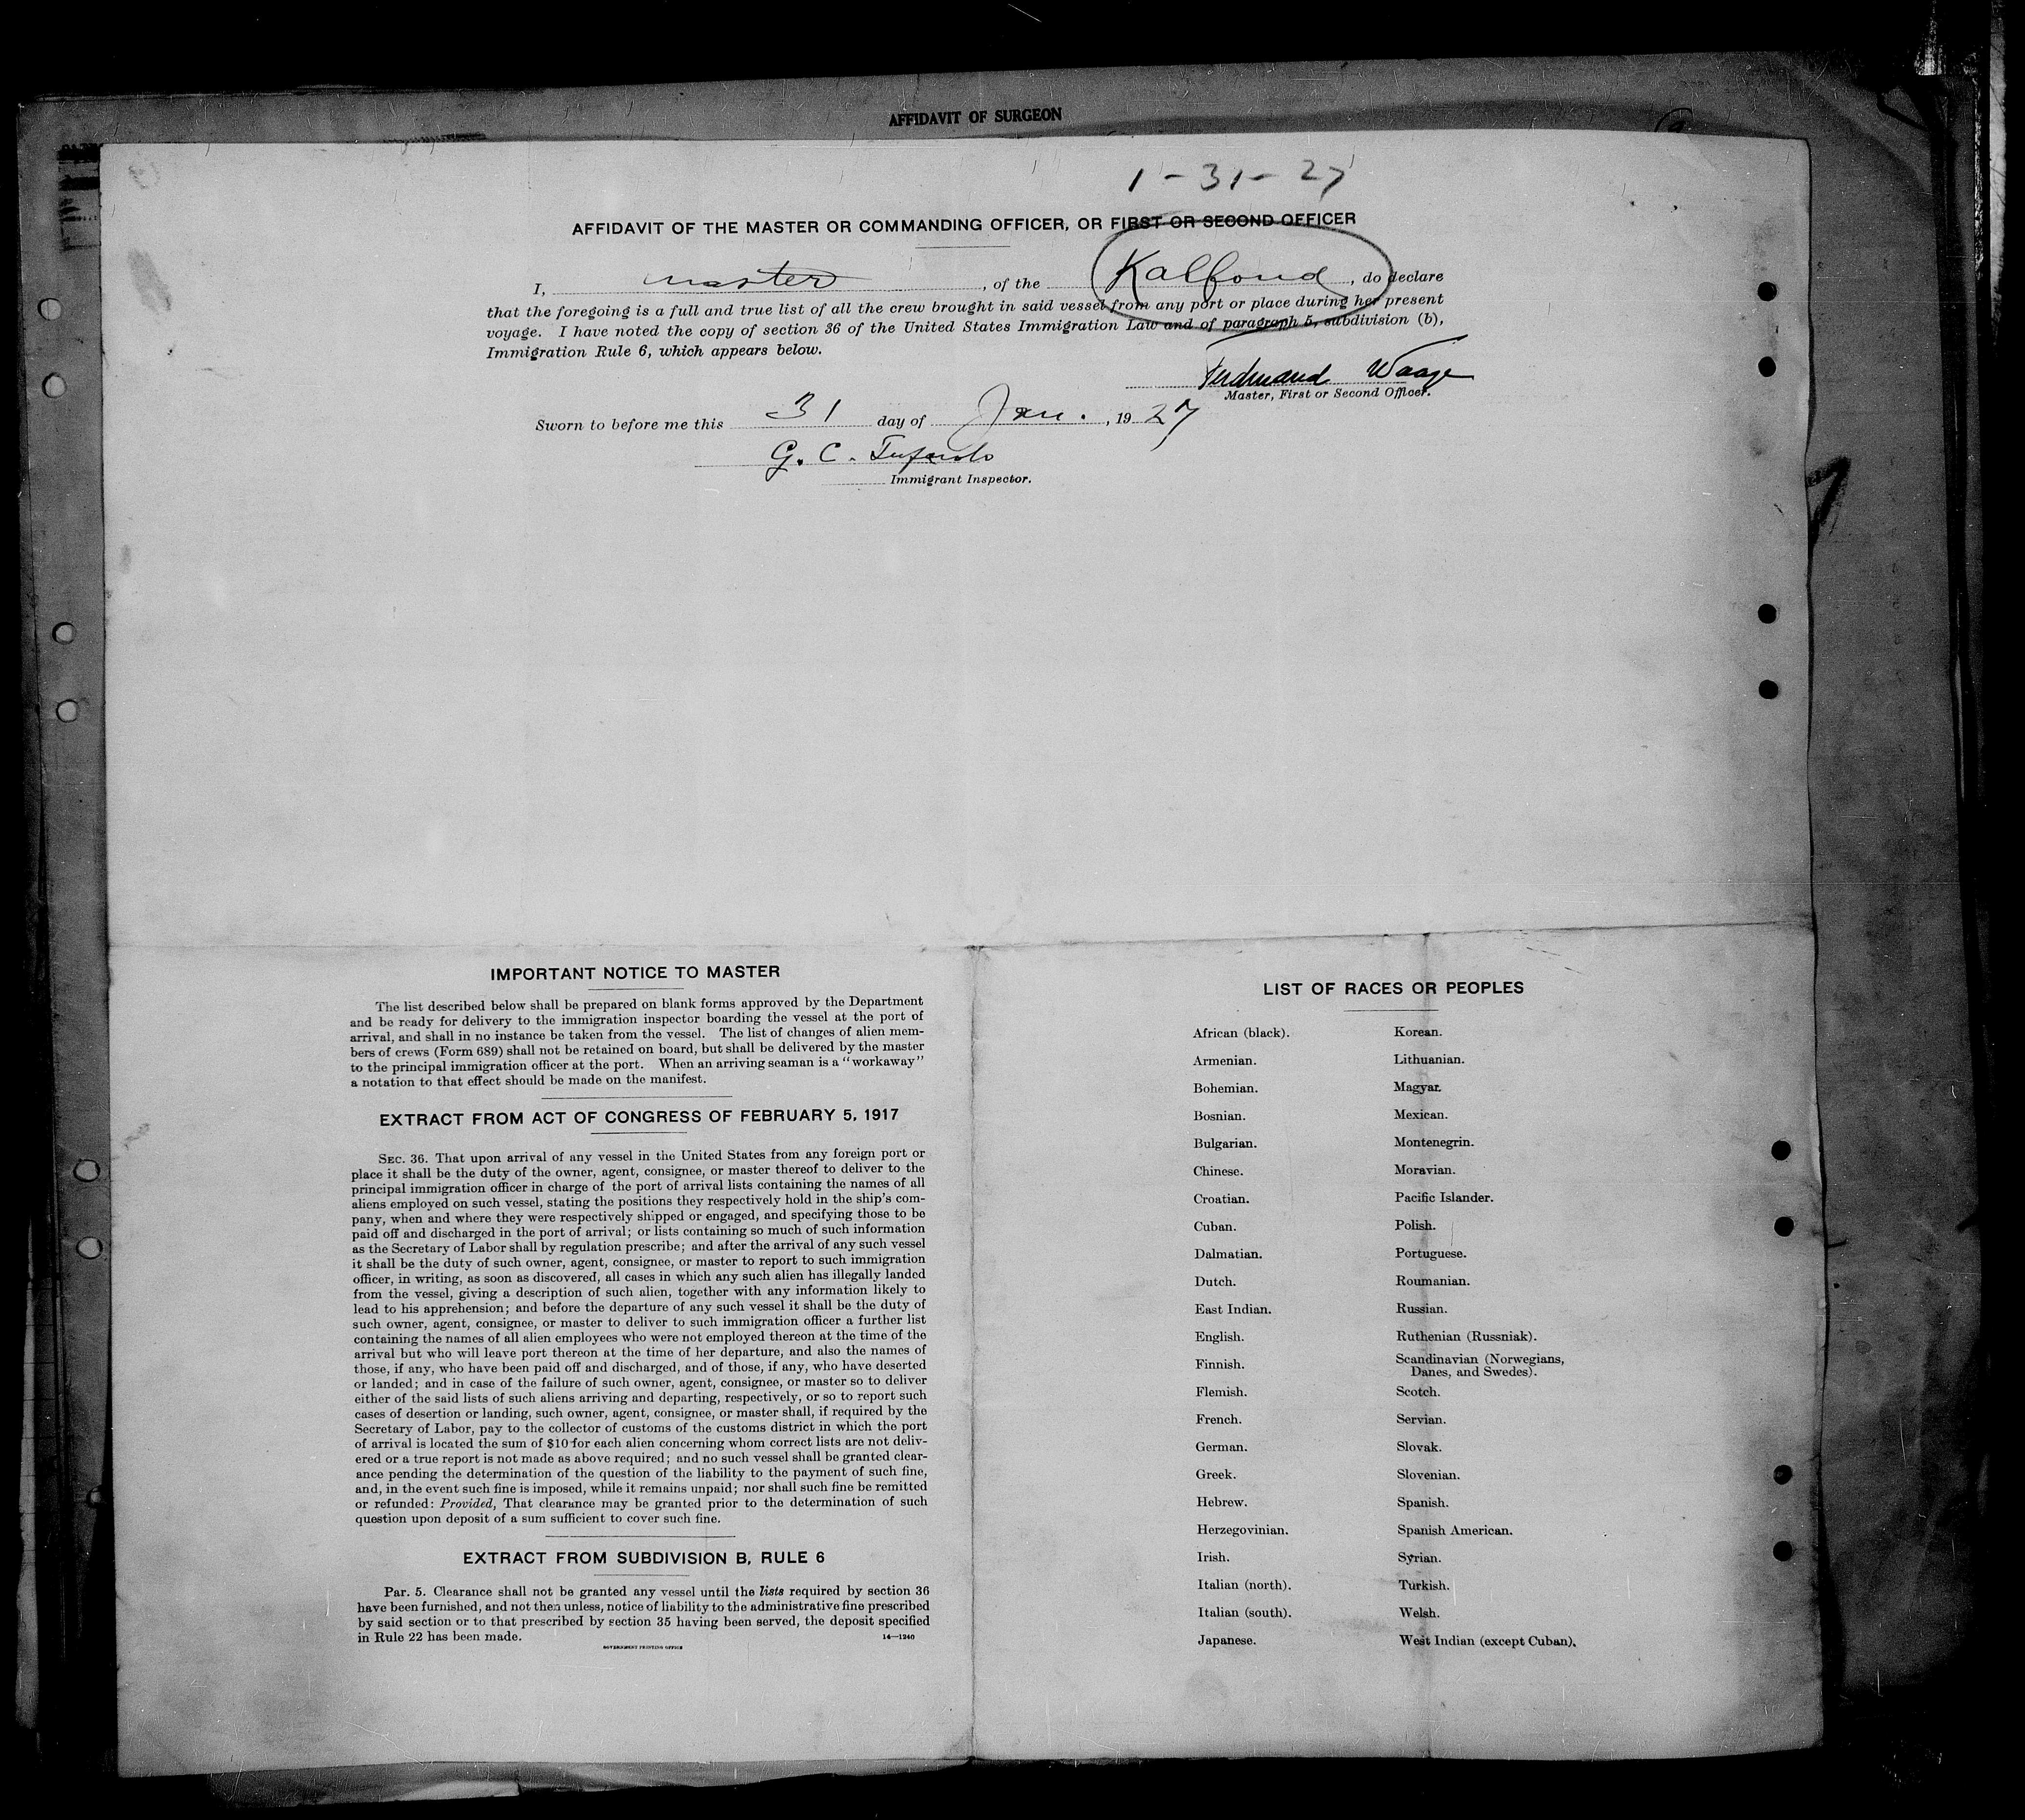 AFFIDAVIT OF SURGEON
1-31-27
AFFIDAVIT OF THE MASTER OR COMMANDING OFFICER, OR FIRST OR SECOND OFFICER
I, master, of the Kalfond, do declare
that the foregoing is a full and true list of all the crew brought in said vessel from any port or place during her present
voyage. I have noted the copy of section 36 of the United States Immigration Law and of paragraph 5, subdivision (b),
Immigration Rule 6, which appears below.
Ferdinand Waage
Master, First or Second Officer.
Sworn to before me this 31 day of Jan., 1927
G. C.
Immigrant Inspector.
IMPORTANT NOTICE TO MASTER
The list described below shall be prepared on blank forms approved by the Department
and be ready for delivery to the immigration inspector boarding the vessel at the port of
arrival, and shall in no instance be taken from the vessel. The list of changes of alien mem-
bers of crews (Form 689) shall not be retained on board, but shall be delivered by the master
to the principal immigration officer at the port. When an arriving seaman is a "workaway"
a notation to that effect should be made on the manifest.
EXTRACT FROM ACT OF CONGRESS OF FEBRUARY 5, 1917
SEC. 36. That upon arrival of any vessel in the United States from any foreign port or
place it shall be the duty of the owner, agent, consignee, or master thereof to deliver to the
principal immigration officer in charge of the port of arrival lists containing the names of all
aliens employed on such vessel, stating the positions they respectively hold in the ship's com-
pany, when and where they were respectively shipped or engaged, and specifying those to be
paid off and discharged in the port of arrival; or lists containing so much of such information
as the Secretary of Labor shall by regulation prescribe; and after the arrival of any such vessel
it shall be the duty of such owner, agent, consignee, or master to report to such immigration
officer, in writing, as soon as discovered, all cases in which any such alien has illegally landed
from the vessel, giving a description of such alien, together with any information likely to
lead to his apprehension; and before the departure of any such vessel it shall be the duty of
such owner, agent, consignee, or master to deliver to such immigration officer a further list
containing the names of all alien employees who were not employed thereon at the time of the
arrival but who will leave port thereon at the time of her departure, and also the names of
those, if any, who have been paid off and discharged, and of those, if any, who have deserted
or landed; and in case of the failure of such owner, agent, consignee, or master so to deliver
either of the said lists of such aliens arriving and departing, respectively, or so to report such
cases of desertion or landing, such owner, agent, consignee, or master shall, if required by the
Secretary of Labor, pay to the collector of customs of the customs district in which the port
of arrival is located the sum of $10 for each alien concerning whom correct lists are not deliv-
ered or a true report is not made as above required; and no such vessel shall be granted clear-
ance pending the determination of the question of the liability to the payment of such fine,
and, in the event such fine is imposed, while it remains unpaid; nor shall such fine be remitted
or refunded: Provided, That clearance may be granted prior to the determination of such
question upon deposit of a sum sufficient to cover such fine.
EXTRACT FROM SUBDIVISION B, RULE 6
Par. 5. Clearance shall not be granted any vessel until the lists required by section 36
have been furnished, and not then unless, notice of liability to the administrative fine prescribed
by said section or to that prescribed by section 35 having been served, the deposit specified
in Rule 22 has been made.
14—1240
GOVERNMENT PRINTING OFFICE
LIST OF RACES OR PEOPLES
African (black).
Armenian.
Bohemian.
Bosnian.
Bulgarian.
Chinese.
Croatian.
Cuban.
Dalmatian.
Dutch.
East Indian.
English.
Finnish.
Flemish.
French.
German.
Greek.
Hebrew.
Herzegovinian.
Irish.
Italian (north).
Italian (south).
Japanese.
Korean.
Lithuanian.
Magyar.
Mexican.
Montenegrin.
Moravian.
Pacific Islander.
Polish.
Portuguese.
Roumanian.
Russian.
Ruthenian (Russniak).
Scandinavian (Norwegians,
Danes, and Swedes).
Scotch.
Servian.
Slovak.
Slovenian.
Spanish.
Spanish American.
Syrian.
Turkish.
Welsh.
West Indian (except Cuban).